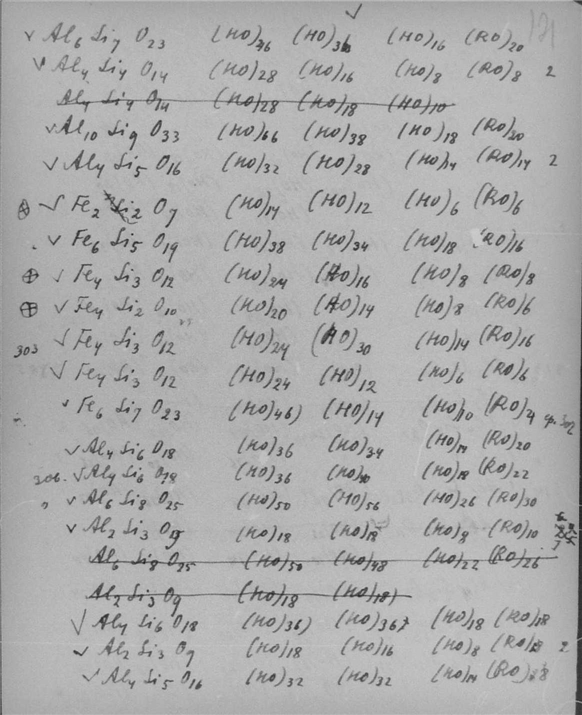 121
√ Al6 Si7 O23 (HO)46 (HO)36 (HO)16 (RO)20
√ Al4 Si4 O14 (HO)28 (HO)16 (HO)8 (RO)8 2
Al4 Si4 O14 (HO)28 (HO)18 (HO)10
√ Al10 Si9 O33 (HO)66 (HO)38 (HO)18 (RO)20
√ Al4 Si5 O16 (HO)32 (HO)28 (HO)14 (RO)14 2
⊕ √ Fe2 Si2 O7 (HO)14 (HO)12 (HO)6 (RO)6
√ Fe6 Si5 O19 (HO)38 (HO)34 (HO)18 (RO)16
⊕ √ Fe4 Si3 O12 (HO)24 (HO)16 (HO)8 (RO)8
⊕ √ Fe4 Si2 O10 (HO)20 (HO)14 (HO)8 (RO)6
303 √ Fe4 Si3 O12 (HO)24 (HO)30 (HO)14 (RO)16
√ Fe4 Si3 O12 (HO)24 (HO)12 (HO)6 (RO)6
√ Fe6 Si7 O23 (HO)46) (HO)14 (HO)10 (RO)4 302
√ Al4 Si6 O18 (HO)36 (HO)34 (HO)14 (RO)20
306. √ Al4 Si6 O18 (HO)36 (HO)40 (HO)18 (RO)22
√ Al6 Si8 O25 (HO)50 (HO)56 (HO)26 (RO)30
√ Al2 Si3 O9 (HO)18 (HO)18 (HO)8 (RO)10
Al6 Si8 O25 (HO)50 (HO)48 (HO)22 (RO)26
Al2 Si3 O9 (HO)18 (HO)18)
√ Al4 Si6 O18 (HO)36) (HO)36) (HO)18 (RO)18
√ Al2 Si3 O9 (HO)18 (HO)16 (HO)8 (RO)8 2
√ Al4 Si5 O16 (HO)32 (HO)32 (HO)14 (RO)18